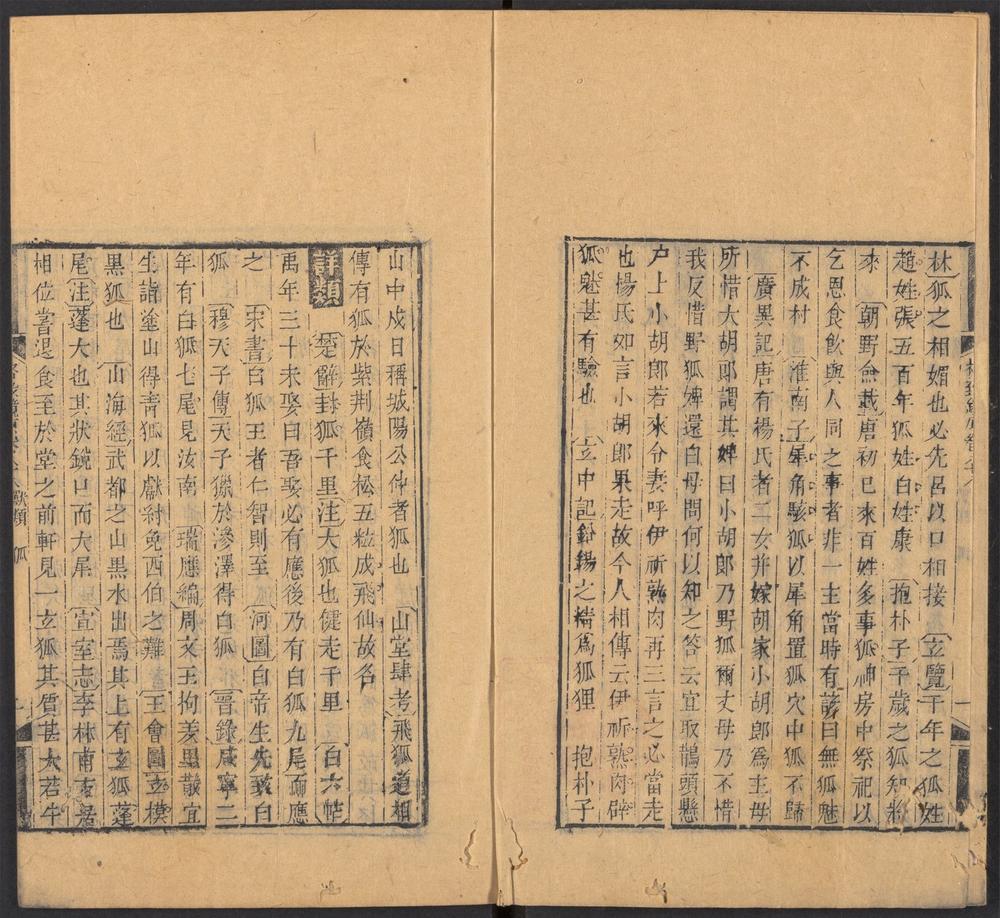 林狐之相媚也必先呂以口相接　玄覽千年之狐姓
趙姓張五百年狐姓白姓康　抱朴子千歲之狐知將
來　朝野僉載唐初已來百姓多事狐神房中祭祀以
乞恩食飲與人同之事者非一主當時有諺曰無狐魅
不成村　淮南子犀角駭狐以犀角置狐穴中狐不歸
廣異記唐有楊氏者二女幷嫁胡家小胡郎爲主母
所惜大胡郎謂其婢曰小胡郎乃野狐爾丈母乃不惜
我反惜野狐婢還白母問何以知之答云宜取鵲頭懸
戶上小胡郎若來令妻呼伊祈熟肉再三言之必當走
也楊氏如言小胡郎果走故今人相傳云伊祈熟肉辟
狐魅甚有驗也　立中記銷錫之精爲狐狸　抱朴子
山中戍日稱城陽公仲者狐也　山堂肆考飛狐道相
傳有狐於紫荆嶺食松五粒成飛仙故名
詳類　楚辭封狐千里注大狐也健走千里　白六帖
禹年三十未娶曰吾娶必有應後乃有白狐九尾而應
之　宋書白狐王者仁智則至　河圖白帝生先致白
狐　穆天子傳天子獵於滲澤得白狐　晉錄咸寧二
年有白狐七尾見汝南　瑞應編周文王拘羑里散宜
生詣塗山得青狐以獻紂免西伯之難　王會圖玄模
黑狐也　山海經武都之山黑水出焉其上有玄狐蓬
尾注蓬大也其狀鏡口而大尾　宣室志李林甫方居
相位嘗退食至於堂之前軒見一玄狐其質甚大若牛
獸類　狐